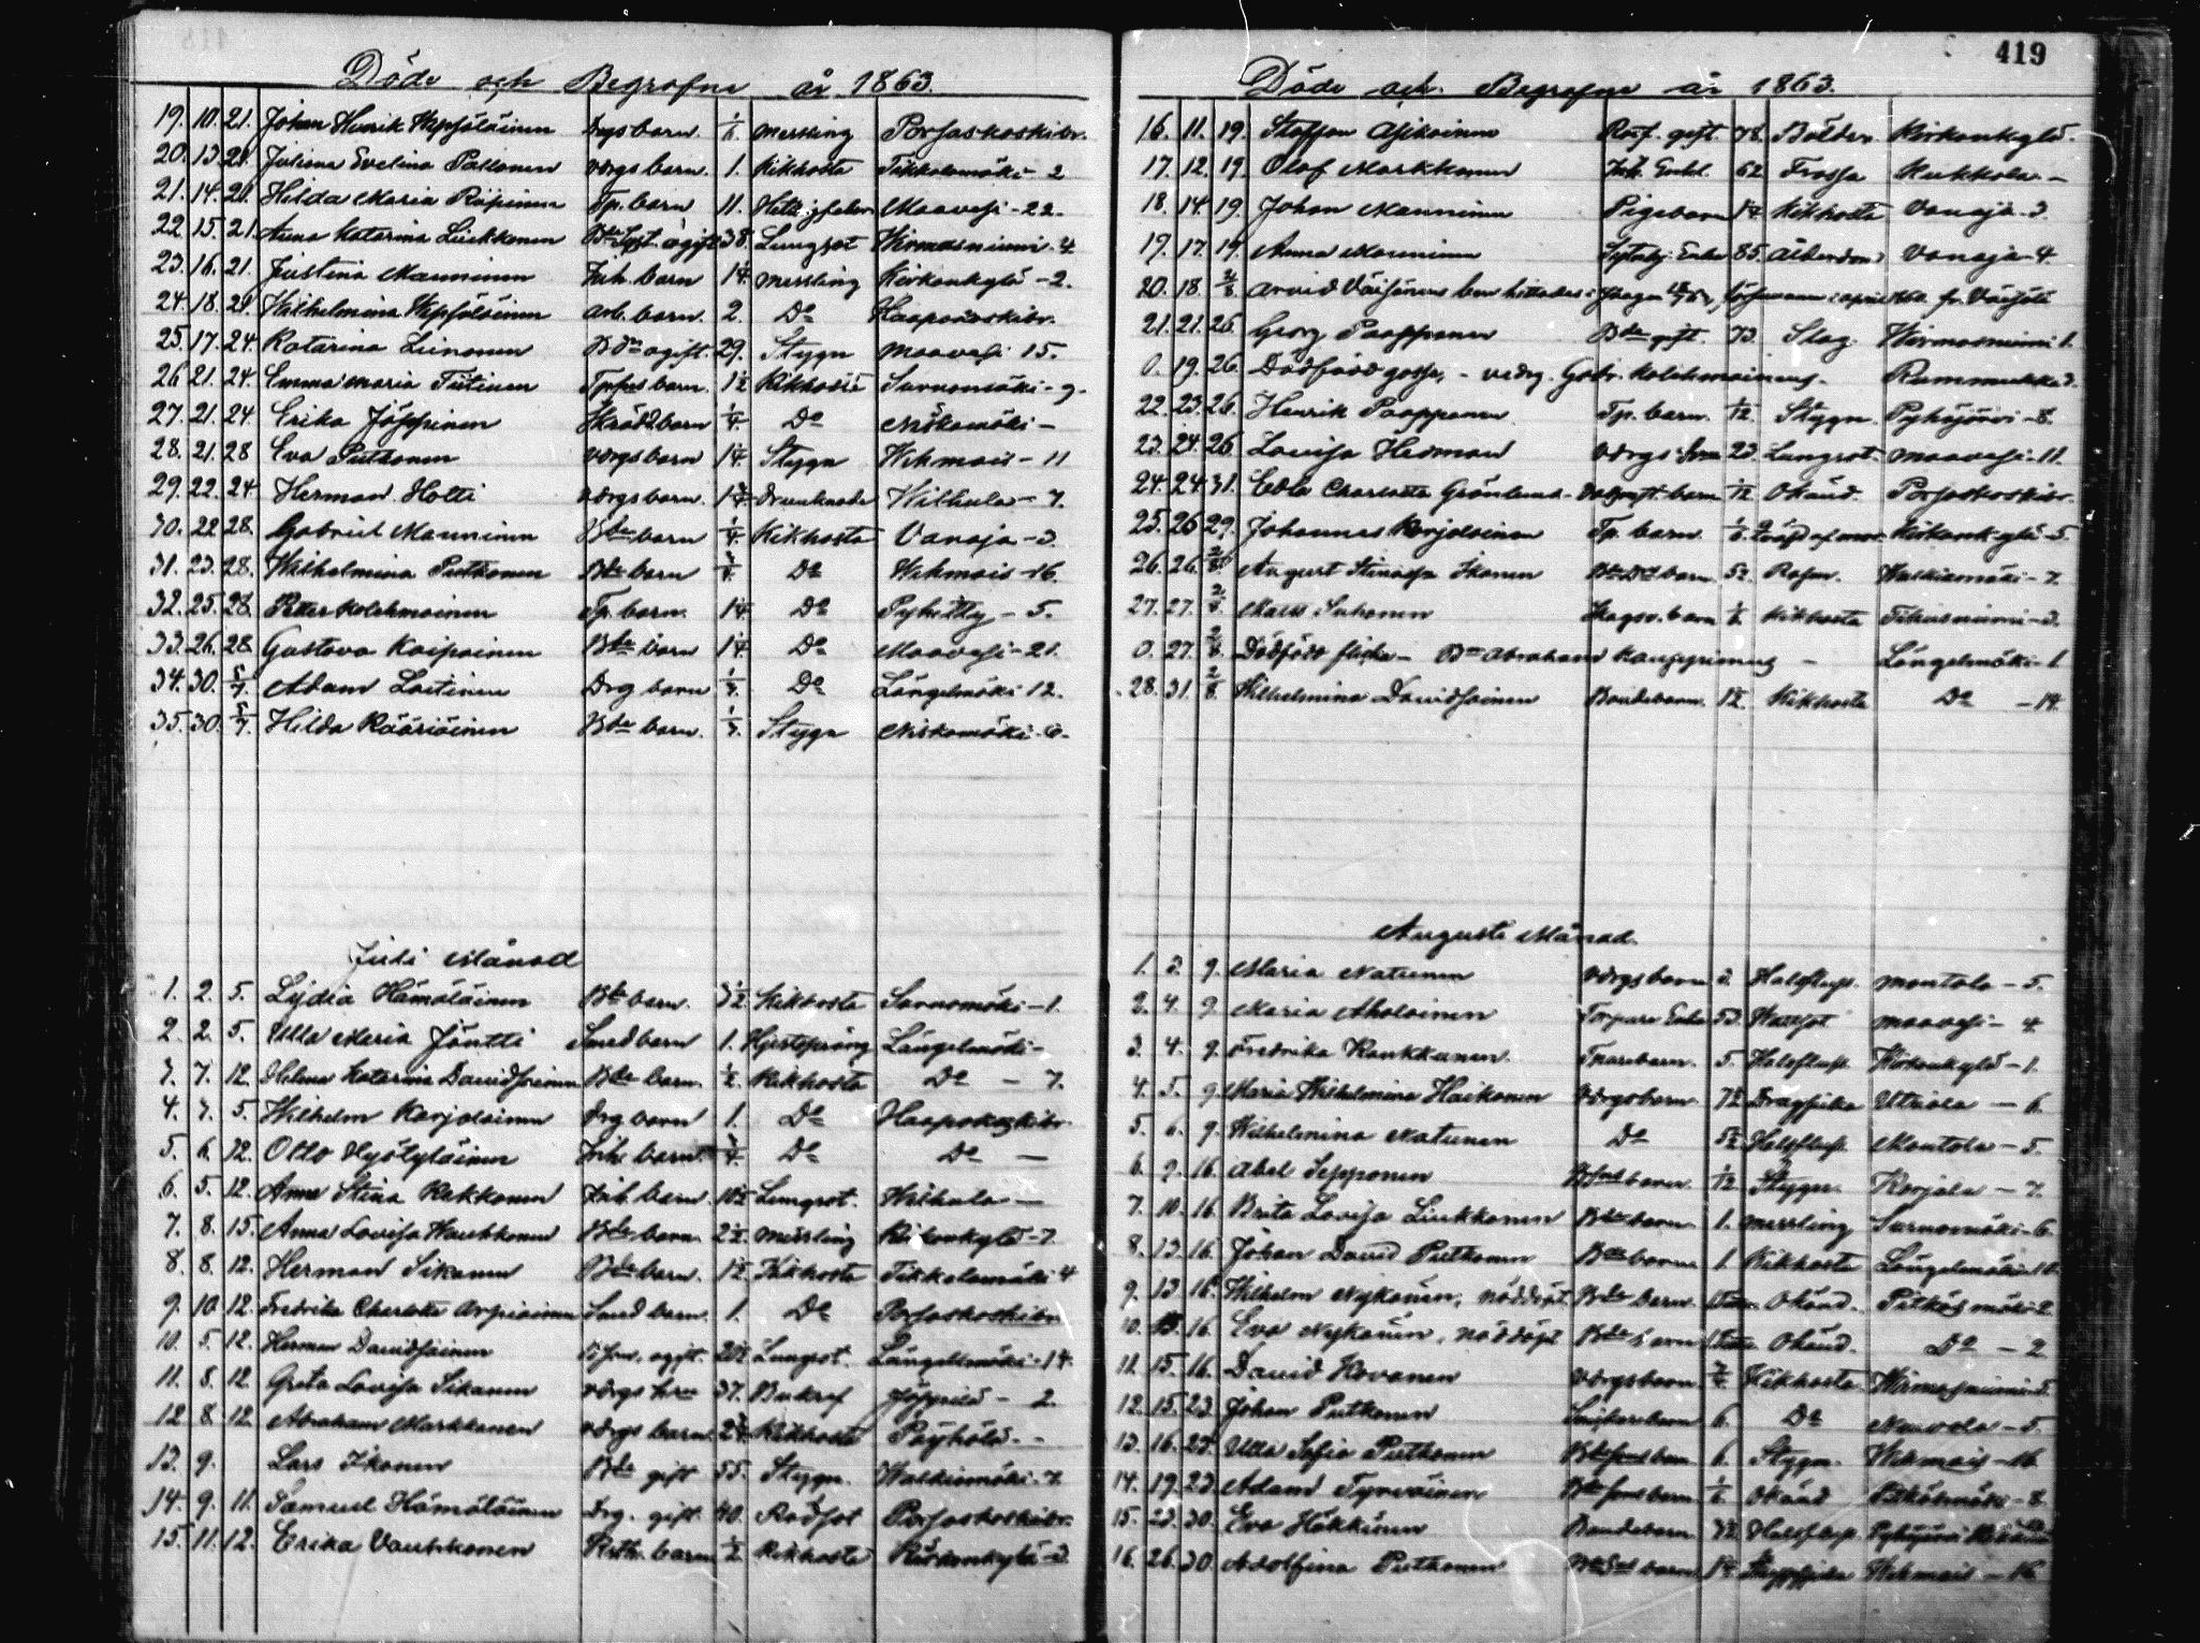 Döde och Begrafne år 1863.
19. 10. 21. Johan Henrik Hepsöläinen Drgs barn. 1/6 Messling Porsaskoskibr.
20. 13. 21. Juliana Evelina Paltonen vdrgs barn. 1. Kikhosta Tikkalamäki - 2
21. 14. 21. Hilda Maria Räpinen Tp. barn 11. Maavesi - 22.
22. 15. 21. Anna Katarina Liukkonen ogift 38. Lungsot Hirmasniemi - 4
23. 16. 21. Justina Manninen Inh. barn 1 1/4. Messling Kirkonkylä - 2.
24. 18. 21. Wilhelmina Hepsöläinen Arb. barn. 2. Do Haapakoskibr.
25. 17. 24. Katarina Leinonen Bdn ogift. 29. Stygn Maavesi 15.
26 21. 24. Emma Maria Tiitinen barn. 1 1/2 Kikhosta Sarvomäki - 9.
27. 21. 24. Erika Jäppinen Skrädd. barn 1/4 Do Niskamäki -
28. 21. 28 Eva Putkonen vdrgs barn 1 1/4. Stygn Wehmais - 11
29. 22. 24. Herman Holti vdrgs barn. Drunknade Wilhula - 7.
30. 22 28. Gabriel Manninen Bde barn 1/4 Kikhosta Vanaja - 3.
31. 23. 28. Wilhelmina Putkonen Bde barn 3/4. Do Wehmais - 16.
32. 25. 28. Petter Kolehmainen Tp. barn. 1 1/4. Do Pyhitty - 5.
33. 26. 28. Gustava Kaipainen Bde barn 1 1/4. Do Maavesi - 21.
34. 30. 5/7. Adam Laitinen Drg barn 1/3. Do Längelmäki 12.
35. 30. 5/7. Hilda Rääriäinen Bde barn. 1/3. Stygn Niskamäki - 6.
Juli Månad
1. 2. 5. Lydia Hämäläinen Bde barn. 3 1/2. Kikhosta Sarvomäki - 1.
2. 2. 5. Ulla Maria Jäntti Smed barn 1. Hjertsprång Längelmäki -
3. 7. 12. Helena Katarina Davidsainen Bde barn. 1/2. Kikhosta Do - 7.
4. 3. 5. Wilhelm Karjalainen Drg barn 1. Do Haapakoskibr.
5. 6. 12. Otto Hyötyläinen Inh. barn. 3/4. Do Do -
6. 5. 12. Anna Stina Kekkonen Inh. barn. 10 1/2 Lungsot. Wilhula -
7. 8. 15. Anna Lovisa Haukkonen Bde barn. 2 1/2. Messling Kirkonkylä - 7.
8. 8. 12. Herman Sikanen Bde barn. 1 1/2. Kikhosta Tikkalamäki 4
9. 10 12. Fredrika Charlotta Arpiainen Smed barn. 1. Do Porsaskoskibr.
10. 5. 12. Herman Davidsainen ogift. 20 1/2 Lungsot. Längelmäki - 14.
11. 8. 12. Greta Lovisa Sikanen vdrgs hru 37. Bukref Jäppilä - 2.
12 8. 12. Abraham Markkanen vdrgs barn. 2 3/4. Kikhosta Päyhölä - -
13. 9. Lars Ikonen Bde gift 55. Stygn. Walkiamäki - 7.
14. 9. 11. Samuel Hämäläinen Drg. gift. 40. Rödsot Porsaskoskibr.
15. 11. 12. Erika Vauhkonen barn 1/2. Kikhosta Kirkonkylä - 3.
419
Döde och Begrafne år 1863.
16. 11. 19. Staffan Asikainen gift 78. Bölder. Kirkonkylä.
17. 12. 19. Olof Markkanen Inh. Enkl. 62 Frossa Kukkola -
18. 14. 19. Johan Manninen Pigebarn 1/4. Kikhosta Vanaja - 3.
19. 17. 19. Anna Manninen Enka 85. Ålderdom Vanaja - 4.
20. 18. 2/8 Arvid Väisänens ben hittades i skogen försvann i april fr. Väisälä
21. 21. 26. Georg Paappanen Bde gift. 73. Slag. Hirmasniemi 1.
0. 19. 26. Dödfödd gosse, - vdrg. Gabr. Kolehmainens - Rummukka 3.
22. 23. 26. Henrik Paappanen. Tp. barn. 1/12. Stygn. Pyhäjärvi - 8.
23. 24. 26. Lovisa Hedman vdrgs hru 23. Lungsot. Maavesi - 11.
24. 24 31. Edla Charlotta Grönlund. barn 1/12 Okänd. Porsaskoskibr.
25. 26 29. Johannes Karjalainen Tp. barn. 1/6 Kirkonkylä - 5
26. 26. 2/8 August Kinassa Ikonen barn 5 1/2. Rosen. Walkiamäki - 7.
27. 27. 2/8. Mats Suhonen Skogsv. barn 1/6 Kikhosta Tihusniemi - 3.
0. 27. 2/8 Dödfödd flicka - Bdn Abraham Kauppinens - Längelmäki - 1
28. 31. 2/8 Wilhelmina Davidsainen Bondebarn. 1 1/2. Kikhosta Do - 14.
Augusti Månad.
1. 3. 9. Maria Natunen vdrgs barn 3. Halsfluss. Montola - 5.
2. 4. 9. Maria Aholainen Torpare Enka 53. Wattsot Maavesi - 4
3. 4. 9. Fredrika Kaukkanen. Tparebarn. 5. Halsfluss. Kirkonkylä - 1.
4. 5. 9. Maria Wilhelmina Haikonen vdrgsbarn. 7 1/2 Dragsjuka Utriala - 6.
5. 6. 9. Wilhelmina Natunen Do 5 1/2 Halsfluss. Montola - 5.
6. 9. 16. Abel Sepponen barn. 1/12 Stygn. Korjala - 7.
7. 10. 16. Brita Lovisa Liukkonen Bde barn. 1. Messling Sarvomäki - 6.
8. 13. 16. Johan David Putkonen Bde barn 1. Kikhosta Längelmäki 10
9. 13. 16. Wilhelm Nykänen, nöddöpt. Bde barn. Okänd. Pitkäsmäki - 2.
10. 13. 16. Eva Nykänen, nöddöpt Bde barn Okänd. Do - 2
11. 15. 16. David Hovanen vdrgsbarn 3/4. Kikhosta Hirmasniemi - 5.
12. 15. 23. Johan Putkonen barn 6. Do Neuvola - 5.
13. 16. 23. Ulla Sofia Putkonen barn 6. Stygn. Wehmais - 16
14. 19. 23. Adam Tyrväinen barn. 1/6 Okänd Pitkäsmäki - 8.
15. 23. 30. Eva Häkkinen Bondebarn. 3 1/2. Halsfluss. Pyhäjärvi
16. 26. 30. Adolfina Putkonen barn. 1 1/4. Wehmais - 16